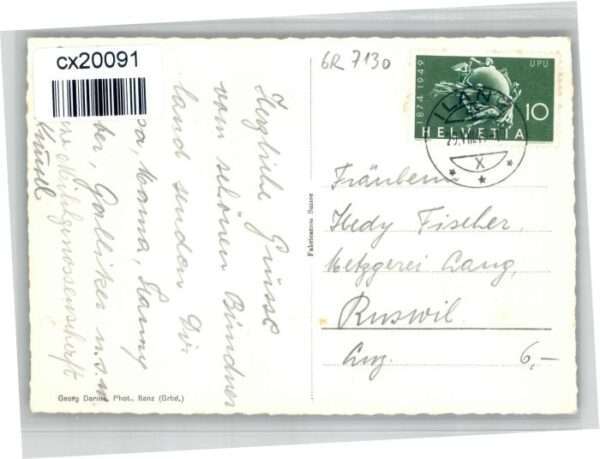 cx20091
GR 7130
1874-1949
UPU
10
HELVETIA
ILANZ
X
Herzliche Grüsse
vom schönen Bündner
land senden Dir
Mama, Hanny
Galliker u.s.w.
Milchgenossenschaft
Fräulein
Hedy Fischer,
Metzgerei Lang,
Ruswil.
Luz.
6,-
Fabrication Suisse
Georg Darms, Phot., Ilanz (Grbd.)